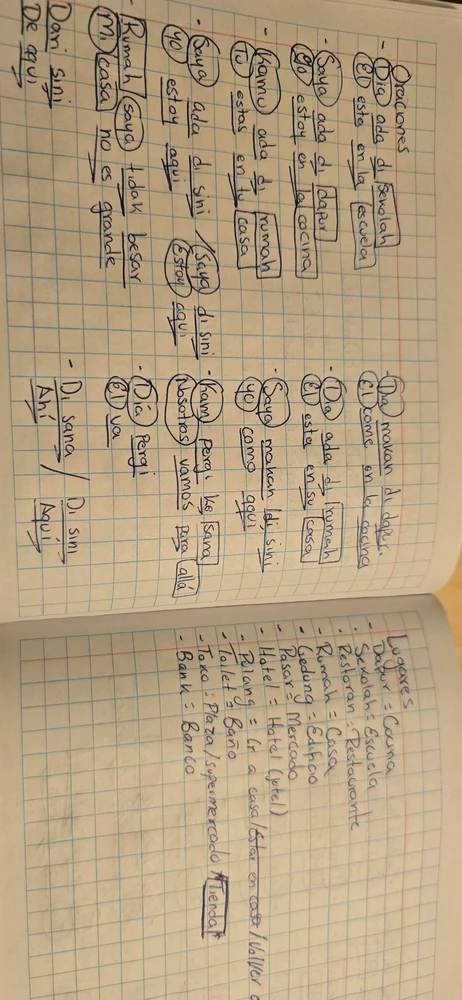 Oraciones
- Dia ada di Sekolah
El esta en la escuela
- Saya ada di dapur
Yo estoy en la cocina
- Kamu ada di rumah
Tu estas en tu casa
- Saya ada di sini / Saya di sini
Yo estoy aqui Estoy aqui
- Rumah saya tidak besar
Mi casa no es grande
Dari sini
De aqui
- Dia makan di dapur.
El come en la cocina
- Dia ada di rumah
El esta en su casa
- Saya makan di sini
Yo como aqui
- Kami pergi ke sana
Nosotros vamos para allá
- Dia pergi
El va
- Di sana / Di sini
Ahí Aquí
Lugares
- Dapur = Cocina
- Sekolah = Escuela
- Restoran = Restaurante
- Rumah = Casa
- Gedung = Edificio
- Pasar = Mercado
- Hotel = Hotel (jotel)
- Pulang = Ir a casa/Estar en casa/Volver a
- Toilet = Baño
- Toko = Plaza/supermercado *Tienda*
- Bank = Banco